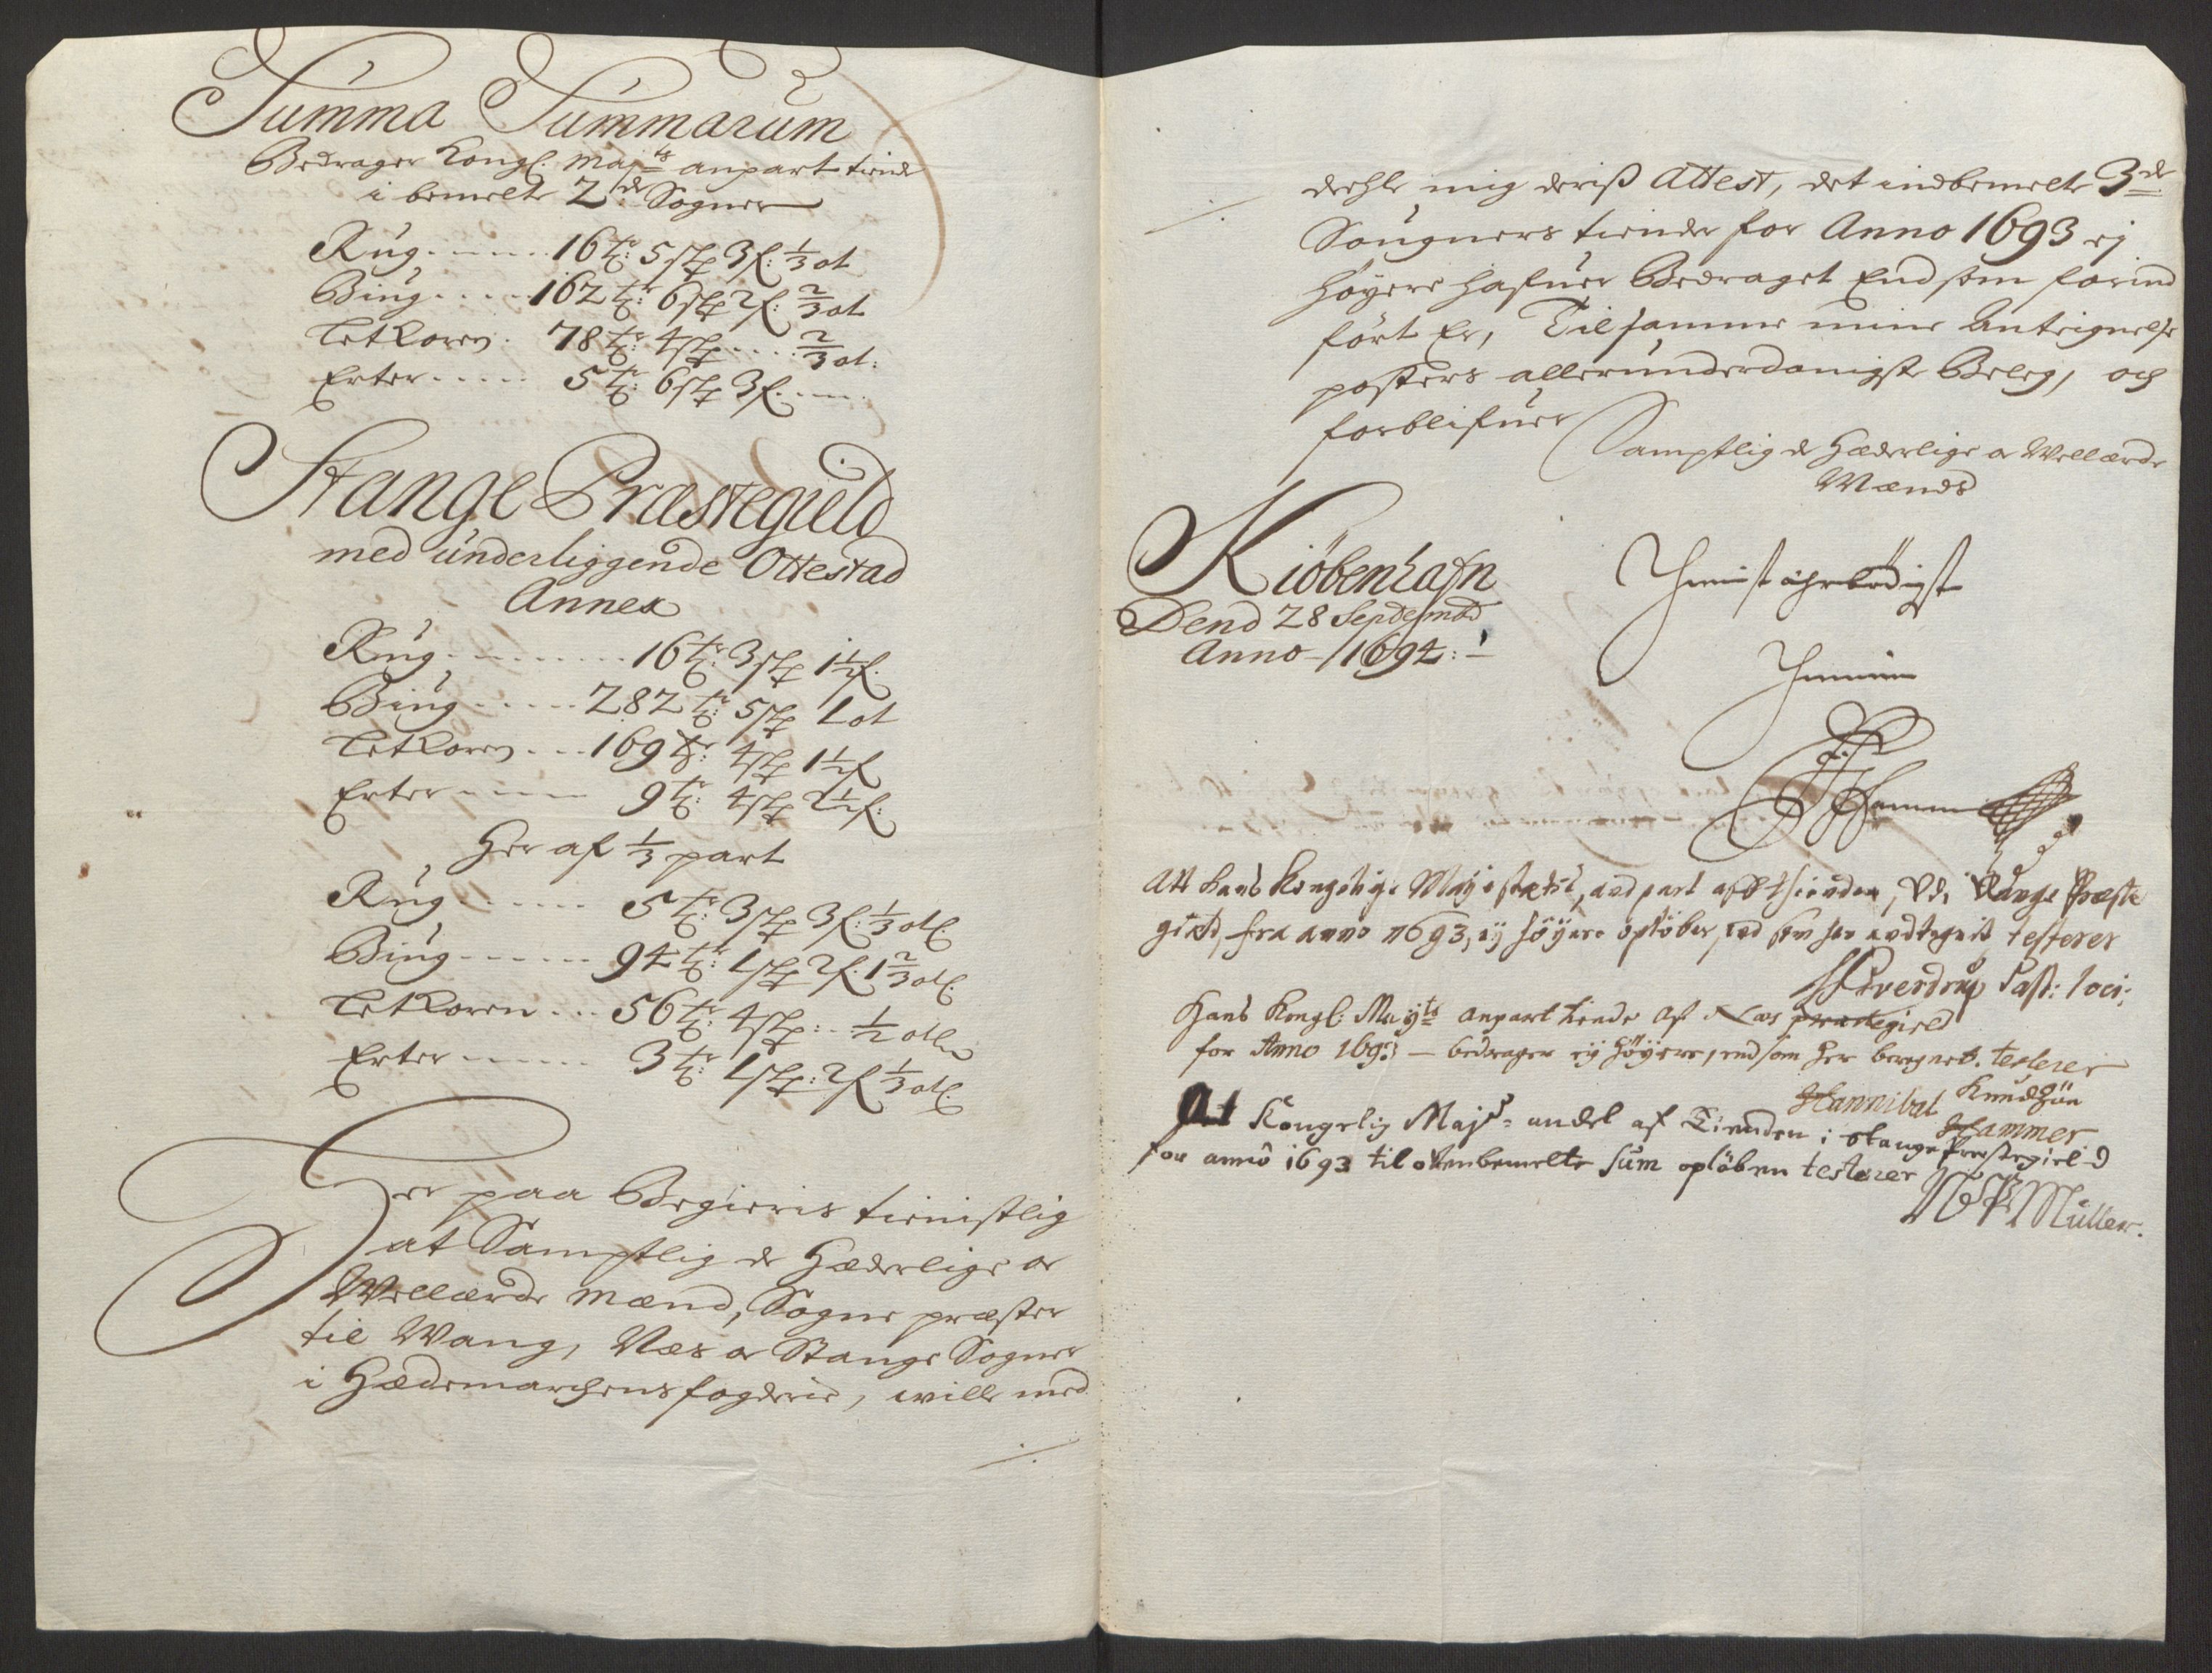 Summa Summarum
Bedrager Kongl. Maj.ts anpart tiende
i bemelte 2de Sogner
Rug ..... 16 tr: 5 skp 3 f: 1/3 ot
Biug ..... 162 tr: 6 skp 2 f: 2/3 ot
Letkorn . 78 tr: 4 skp .... 2/3 ot:
Erter ..... 5 tr: 6 skp 3 f. ....
Stange Præstegield
med underliggende Ottestad
Annex
Rug ........ 16 tr: 3 skp 1 1/2 f.
Biug ..... 282 tr: 5 skp 1 ot
Letkorn ... 169 tr: 4 skp 1 1/2 f
Erter ..... 9 tr: 4 skp 2 1/2 f:
Her af 1/3 part
Rug ...... 5 tr: 3 skp 3 f: 1/3 otl.
Biug ...... 94 tr: 1 skp 2 f. 1 2/3 otl.
Letkorn ... 56 tr: 4 skp: .. 1/2 otl
Erter ...... 3 tr: 1 skp: 2 f 1/3 otl.
Der paa Begieris tienistlig
at Samptlig de Hæderlige oc
Wellærde Mænd, Sogne præster
til Wang, Næs oc Stange Sogner
i Hædemarchens fogderie, wille med
deehle mig deris Attest, det indbemelte 3de
Sougners tiender for Anno 1693 ej
høyere hafuer Bedraget End som forind
ført Er, Til samme mine Anteignelse
posters allerunderdanigste Beleg, och
forblifuer
Samptlig de Hæderlige oc Wellærde
Mænds
Kiöbenhafn
Dend 28 Septembr
Anno 1694:
Thienist
Att hans Kongelige Mayestæts andpart aff thienden, Udi Vange Præste
gield, fra anno 1693, ej höyere opløber, end som her andtegnit testerer
Sverdrup Past: loci:
Hans Kongl: Mayts anpart tiende af Næs præstegield
for Anno 1693 - bedrager ey höyere, end som her beregnet. testerer
Hannibal Knudsøn
Hammer
At Kongelig Majs: andel af Tienden i stange Præstegield
for anno 1693 til ofvenbemelte sum opløben testerer
Müller.